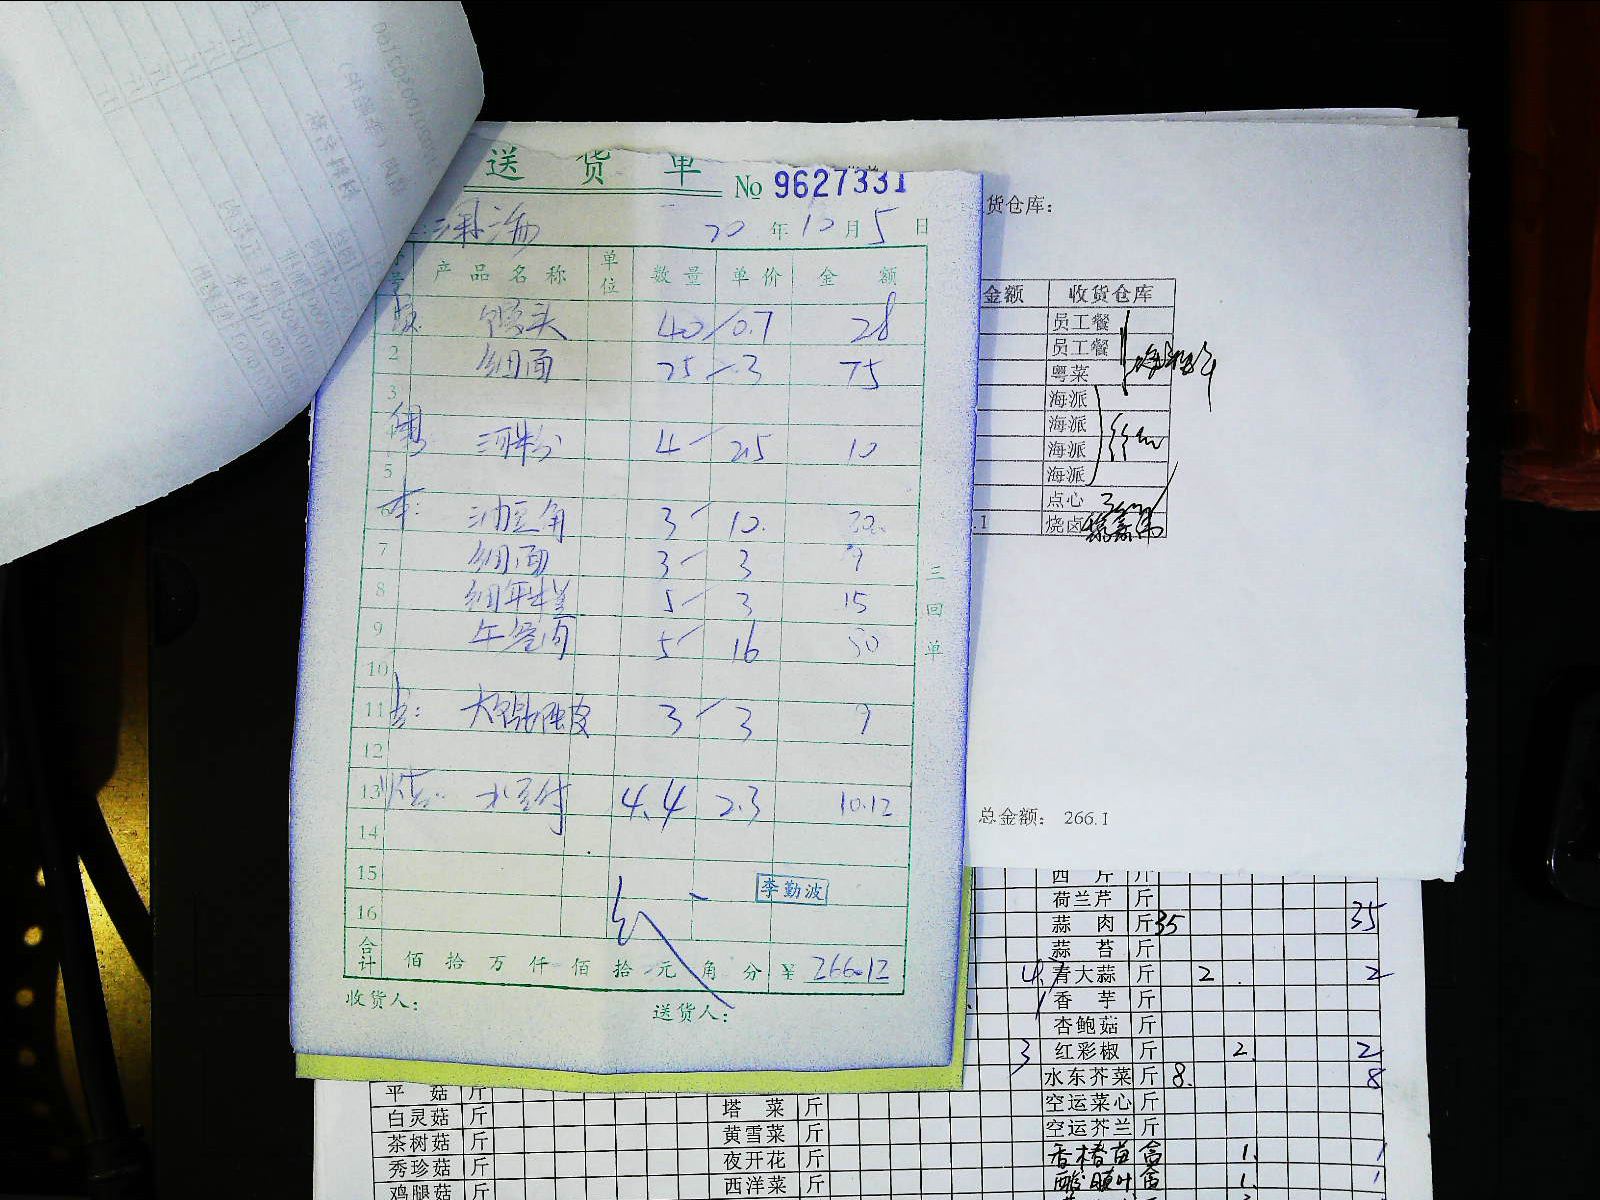 送货单 No 9627331
20 年 10 月 5 日
产品名称 单位 数量 单价 金额
馒头 40 0.7 28
2 细面 25 3 75
3
河粉 4 2.5 10
5
油豆角 3 10. 30.
7 细面 3 3 9
8 细年糕 5 3 15
9 5 16 80
10
11 大馄饨皮 3 3 9
12
13 水豆付 4.4 2.3 10.12
14
15
李勤波
16
合计 佰 拾 万 仟 佰 拾 元 角 分 ¥ 266.12
收货人: 送货人:
三回单
货仓库:
金额 收货仓库
员工餐
员工餐
粤菜
海派
海派
海派
海派
点心
.1 烧卤
总金额: 266.1
西芹 斤
荷兰芹 斤
蒜肉 斤 35 35
蒜苔 斤
青大蒜 斤 2 2
香芋 斤
杏鲍菇 斤
3 红彩椒 斤 2 2
水东芥菜 斤 8. 8
空运菜心 斤
空运芥兰 斤
香椿苗 盒 1. 1
1. 1
平菇 斤
白灵菇 斤
茶树菇 斤
秀珍菇 斤
鸡腿菇 斤
塔菜 斤
黄雪菜 斤
夜开花 斤
西洋菜 斤